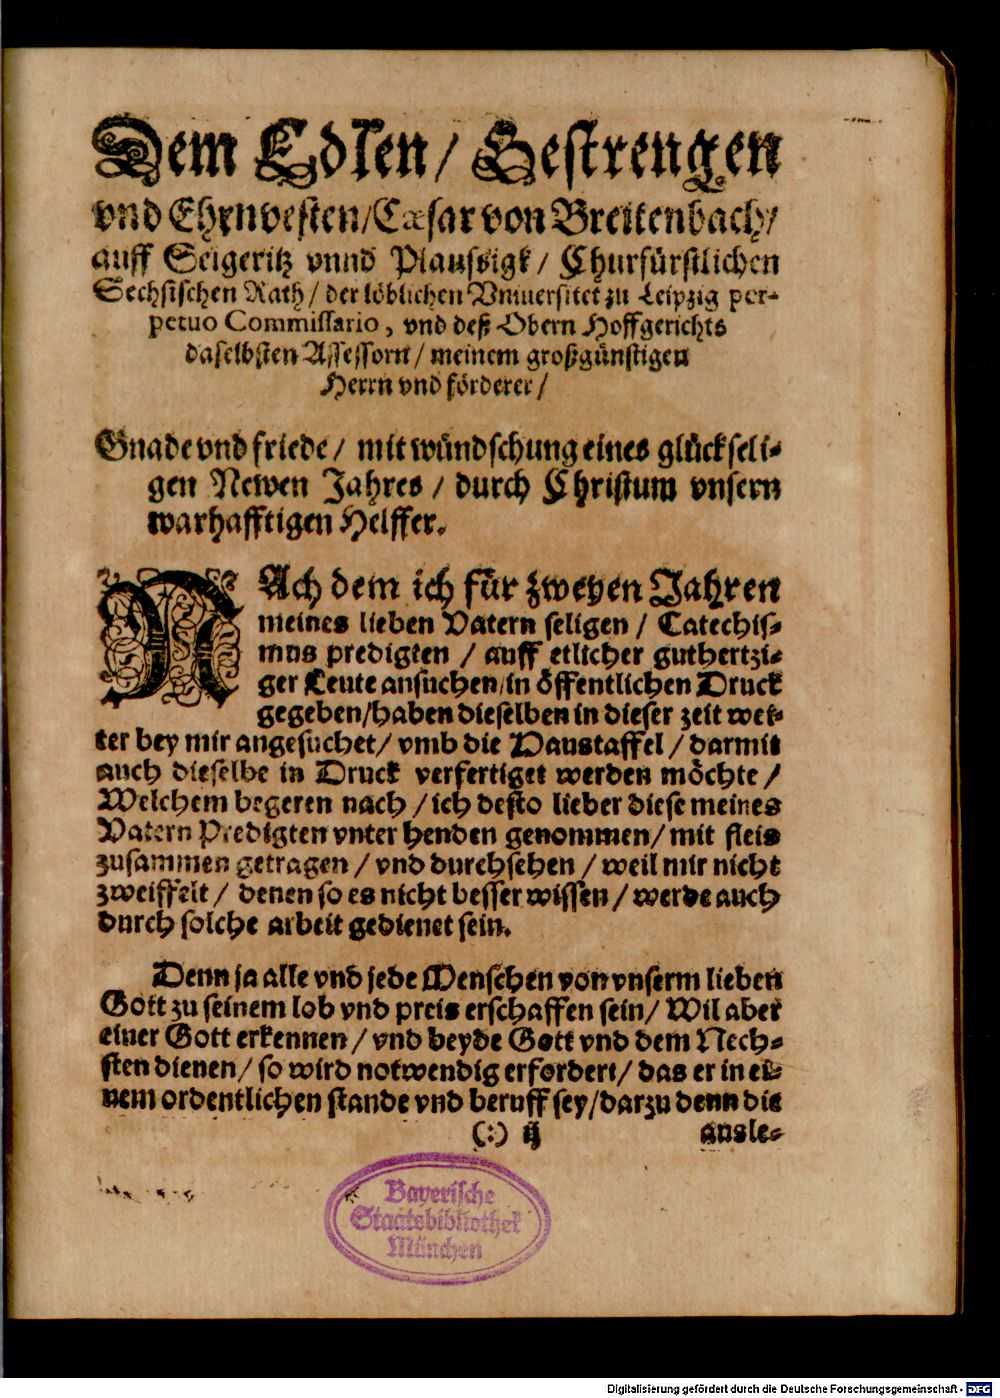 Dem Edlen / Gestrengen
vnd Ehrnvesten / Cæsar von Breitenbach /
auff Seigeritz vnnd Plaussigk / Churfürstlichen
Sechsischen Rath / der löblichen Vniuersitet zu Leipzig per-
petuo Commissario, vnd deß Obern Hoffgerichts
daselbsten Assessorn / meinem großgünstigen
Herrn vnd förderer /
Gnade vnd friede / mit wündschung eines glückseli-
gen Newen Jahres / durch Christum vnsern
warhafftigen Helffer.
NAch dem ich für zweyen Jahren
meines lieben Vatern seligen / Catechis-
mus predigten / auff etlicher guthertzi-
ger Leute ansuchen / in öffentlichen Druck
gegeben / haben dieselben in dieser zeit wei-
ter bey mir angesuchet / vmb die Haustaffel / darmit
auch dieselbe in Druck verfertiget werden möchte /
Welchem begeren nach / ich desto lieber diese meines
Vatern Predigten vnter henden genommen / mit fleis
zusammen getragen / vnd durchsehen / weil mir nicht
zweiffelt / denen so es nicht besser wissen / werde auch
durch solche arbeit gedienet sein.
Denn ja alle vnd jede Menschen von vnserm lieben
Gott zu seinem lob vnd preis erschaffen sein / Wil aber
einer Gott erkennen / vnd beyde Gott vnd dem Nech-
sten dienen / so wird notwendig erfordert / das er in ei-
nem ordentlichen stande vnd beruff sey / darzu denn die
(:) ij ausle-
Bayerische
Staatsbibliothek
München
Digitalisierung gefördert durch die Deutsche Forschungsgemeinschaft - DFG